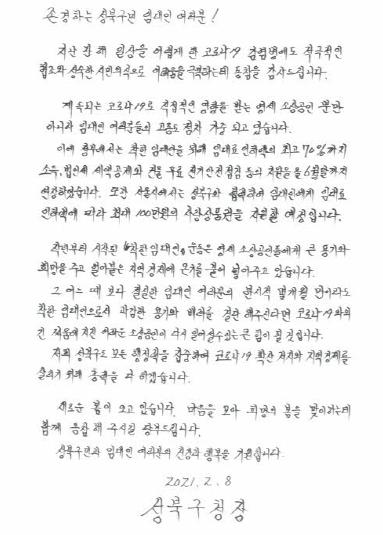 존경하는 성북구민 임대인 여러분!
지난 한 해 일상을 어렵게 한 코로나19 감염병에도 적극적인
협조와 성숙한 시민의식으로 어려움을 극복하는데 동참을 감사드립니다.
계속되는 코로나19로 직접적인 영향을 받는 영세 소상공인 뿐만
아니라 임대인 여러분들의 고통도 점차 가중 되고 있습니다.
이에 정부에서는 착한 임대인을 위해 임대료 인하액의 최고 70%까지
소득, 법인세 세액공제와 건물 무료 전기안전점검 등의 지원을 올 6월말까지
연장하였습니다. 또한 서울시에서는 성북구와 협력하여 임대인에게 임대료
인하액에 따라 최대 100만원의 사랑상품권을 지원할 예정입니다.
작년부터 시작된 "착한 임대인" 운동은 영세 소상공인들에게 큰 용기와
희망을 주고 얼어붙은 지역경제에 온기를 불어 넣어주고 있습니다.
그 어느 때 보다 절실한 임대인 여러분의 한시적 몇개월 만이라도
착한 임대인으로서 과감한 용기와 배려를 결단 해주신다면 코로나19와의
긴 싸움에 지친 어려운 소상공인이 다시 일어설수있는 큰 힘이 될 것입니다.
저희 성북구도 모든 행정력을 집중하여 코로나19 확산 저지와 지역경제를
살리기 위해 총력을 다 하겠습니다.
새로운 봄이 오고 있습니다. 마음을 모아 희망의 봄을 맞이하는데
함께 동참 해 주시길 당부드립니다.
성북구민과 임대인 여러분의 건강과 행복을 기원합니다.
2021. 2. 8
성북구청장